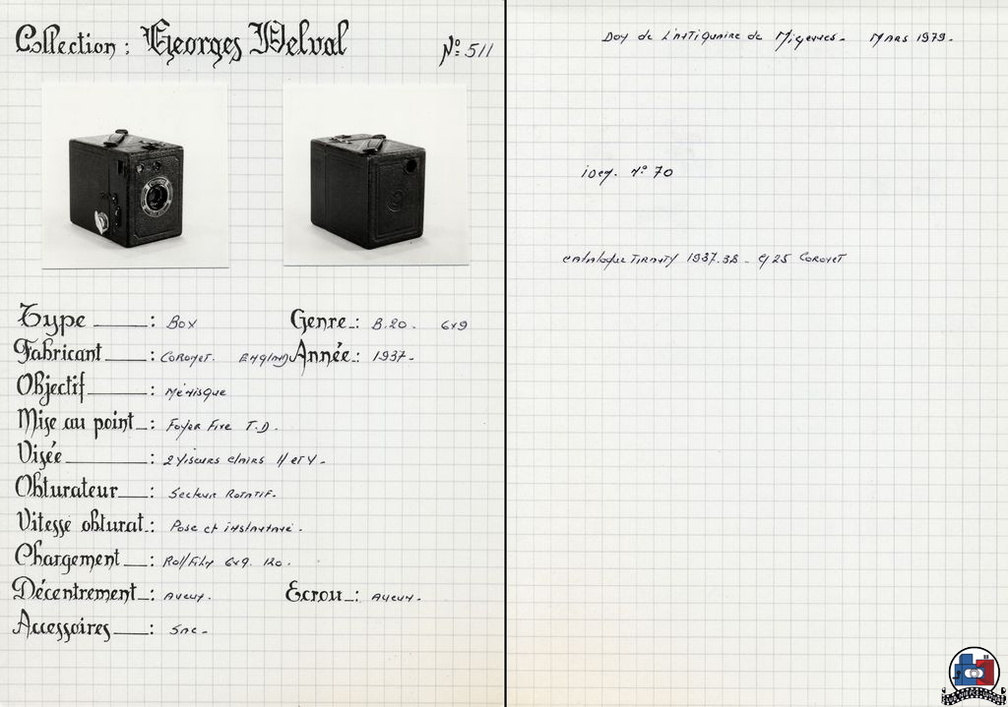 Collection : Georges Delval N°: 511
Type : Box Genre : B.20. 6x9
Fabricant : Coronet. England Année : 1937.
Objectif : Ménisque
Mise au point : Foyer Fixe T.D.
Visée : 2 Viseurs clairs H et V.
Obturateur : Secteur Rotatif.
Vitesse obturat. : Pose et instantané.
Chargement : Roll Film 6x9. 120.
Décentrement : Aucun. Ecrou : Aucun.
Accessoires : Sac.
Don de L'Antiquaire de Migennes. Mars 1979.
N° 70
catalogue Tiranty 1937.38 - Coronet